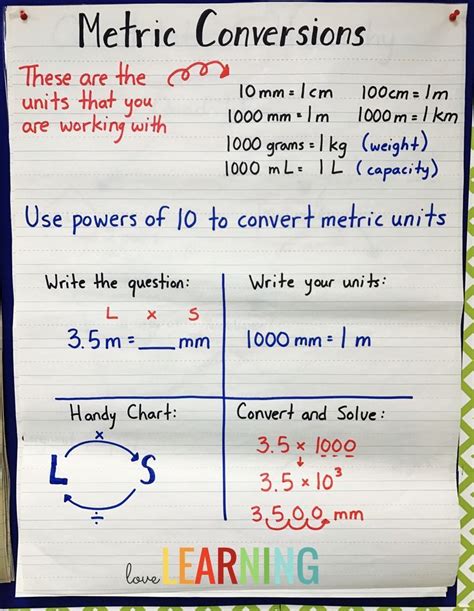 Metric Conversions
These are the
units that you
are working with
10 mm = 1 cm
100cm = 1m
1000 mm = 1 m
1000 m = 1 km
1000 grams = 1 kg (weight)
1000 mL = 1 L (capacity)
Use powers of 10 to convert metric units
Write the question:
L x S
3.5 m = ____ mm
Write your units:
1000 mm = 1 m
Handy Chart:
x
L S
÷
Convert and Solve:
3.5 × 1000
3.5 × 10³
3,500 mm
love LEARNING